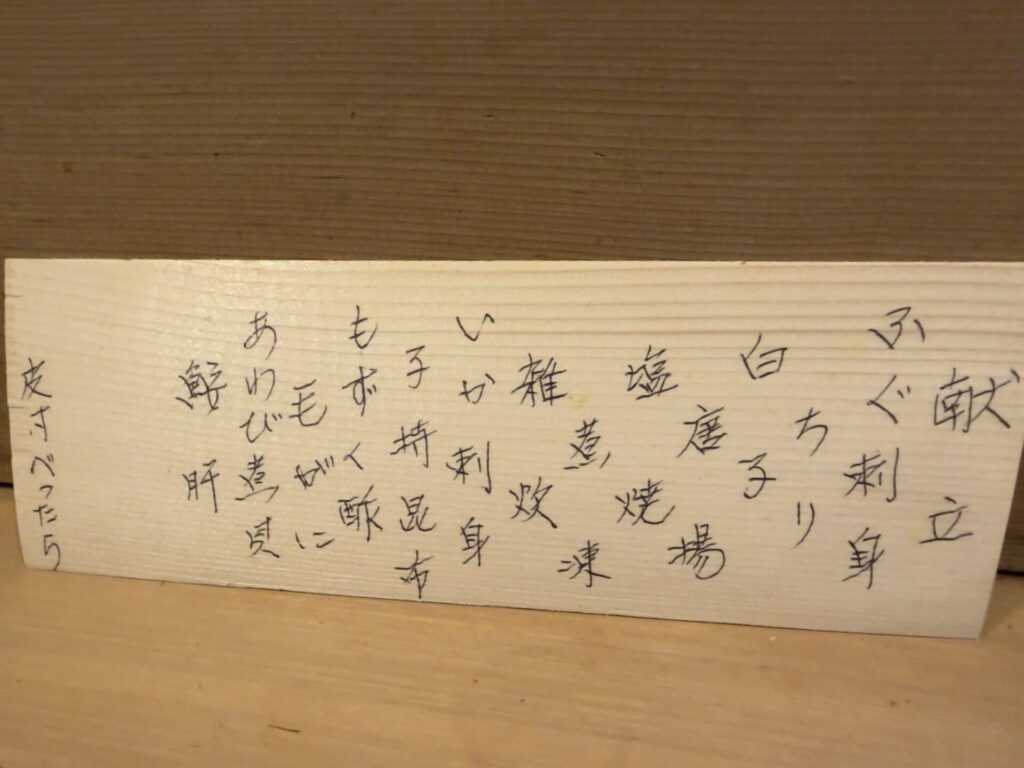 献立
ふぐ刺身
ちり
白子
唐揚
塩焼
煮凍
雑炊
いか刺身
子持昆布
もずく酢
毛がに
あわび煮貝
鮟肝
皮寸べったら